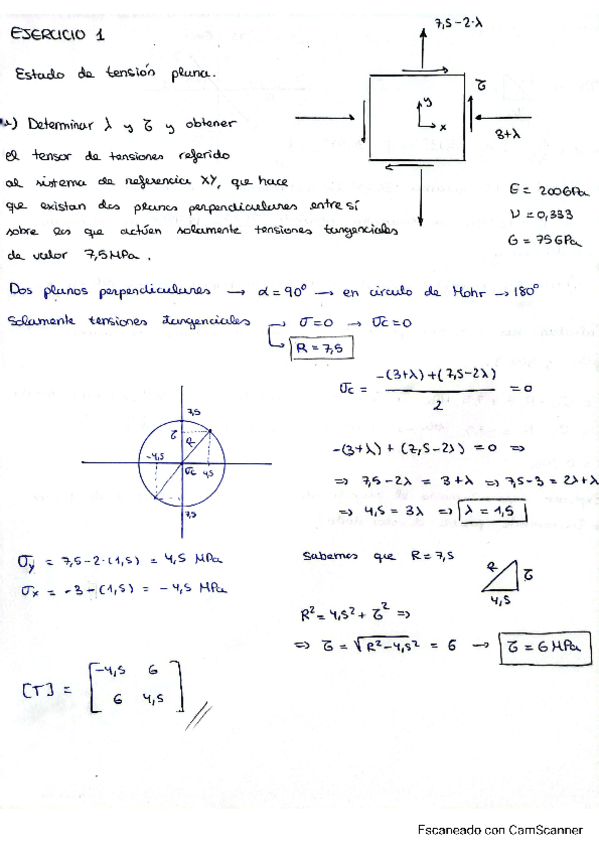 EJERCICIO 1
7,5-2·λ
Estado de tensión plana.
τ
y
x
3+λ
a) Determinar λ y τ y obtener
el tensor de tensiones referido
al sistema de referencia XY, que hace
que existan dos planos perpendiculares entre sí
sobre los que actúen solamente tensiones tangenciales
de valor 7,5 MPa.
E = 200 GPa
ν = 0,333
G = 75 GPa
Dos planos perpendiculares → α = 90° → en círculo de Mohr → 180°
Solamente tensiones tangenciales → σ = 0 → σc = 0
→ R = 7,5
σc = -(3+λ)+(7,5-2λ) / 2 = 0
7,5
τ
R
-4,5
σc
4,5
7,5
-(3+λ) + (7,5-2λ) = 0 ⇒
⇒ 7,5-2λ = 3+λ ⇒ 7,5-3 = 2λ+λ
⇒ 4,5 = 3λ ⇒ λ = 1,5
σy = 7,5-2·(1,5) = 4,5 MPa
σx = -3-(1,5) = -4,5 MPa
Sabemos que R = 7,5
R
τ
4,5
R² = 4,5² + τ² ⇒
⇒ τ = √R²-4,5² = 6 → τ = 6 MPa
[T] = [-4,5 6
6 4,5]
Escaneado con CamScanner